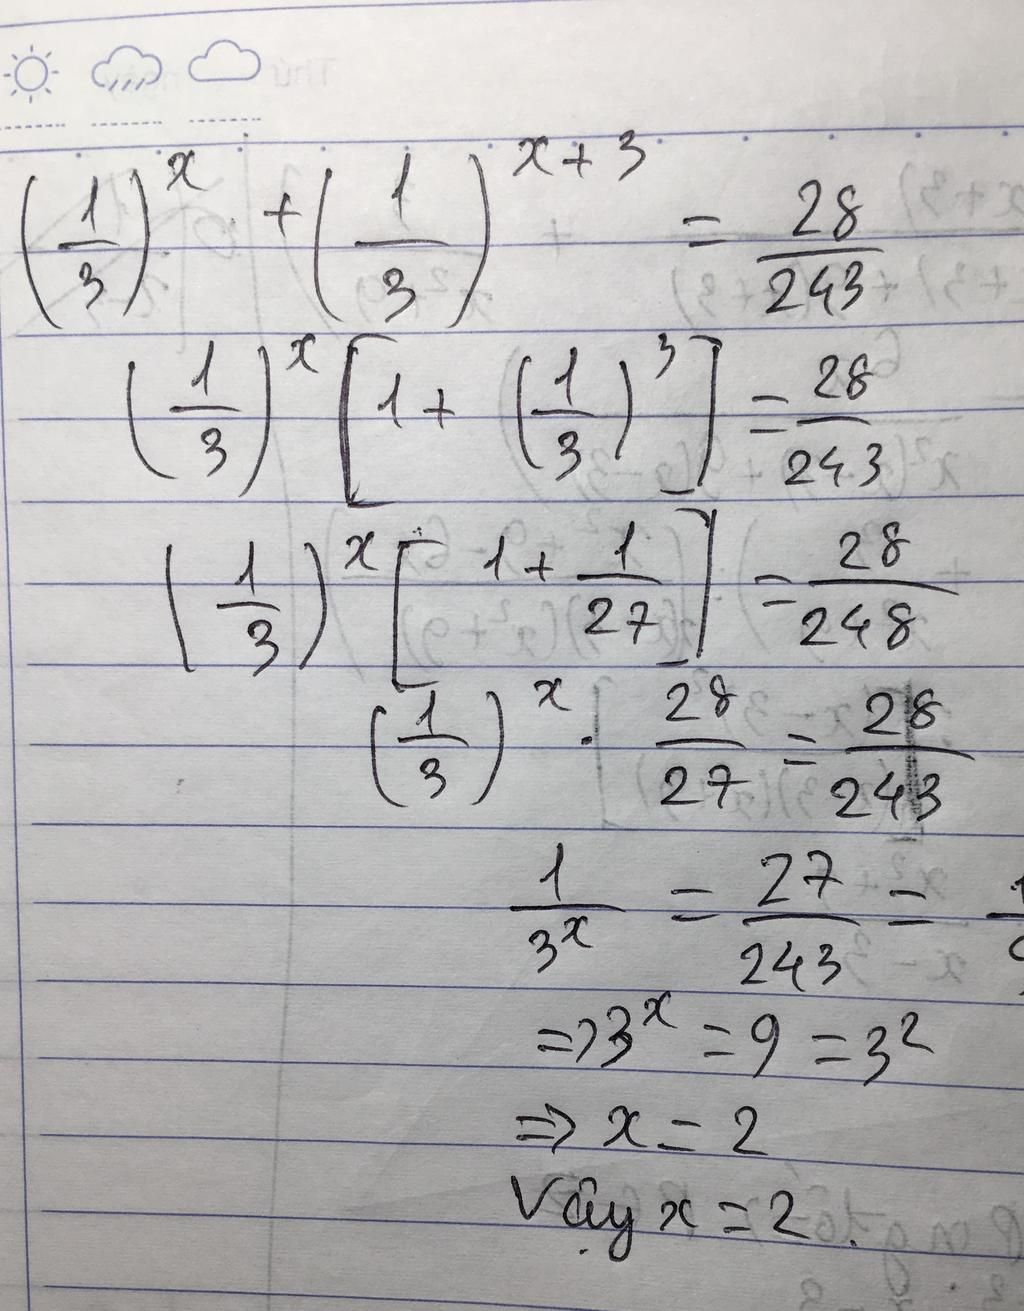 (1/3)^x + (1/3)^(x+3) = 28/243
(1/3)^x [1 + (1/3)^3] = 28/243
(1/3)^x [1 + 1/27] = 28/248
(1/3)^x . 28/27 = 28/243
1/3^x = 27/243 = 1/
=> 3^x = 9 = 3^2
=> x = 2
Vậy x = 2.